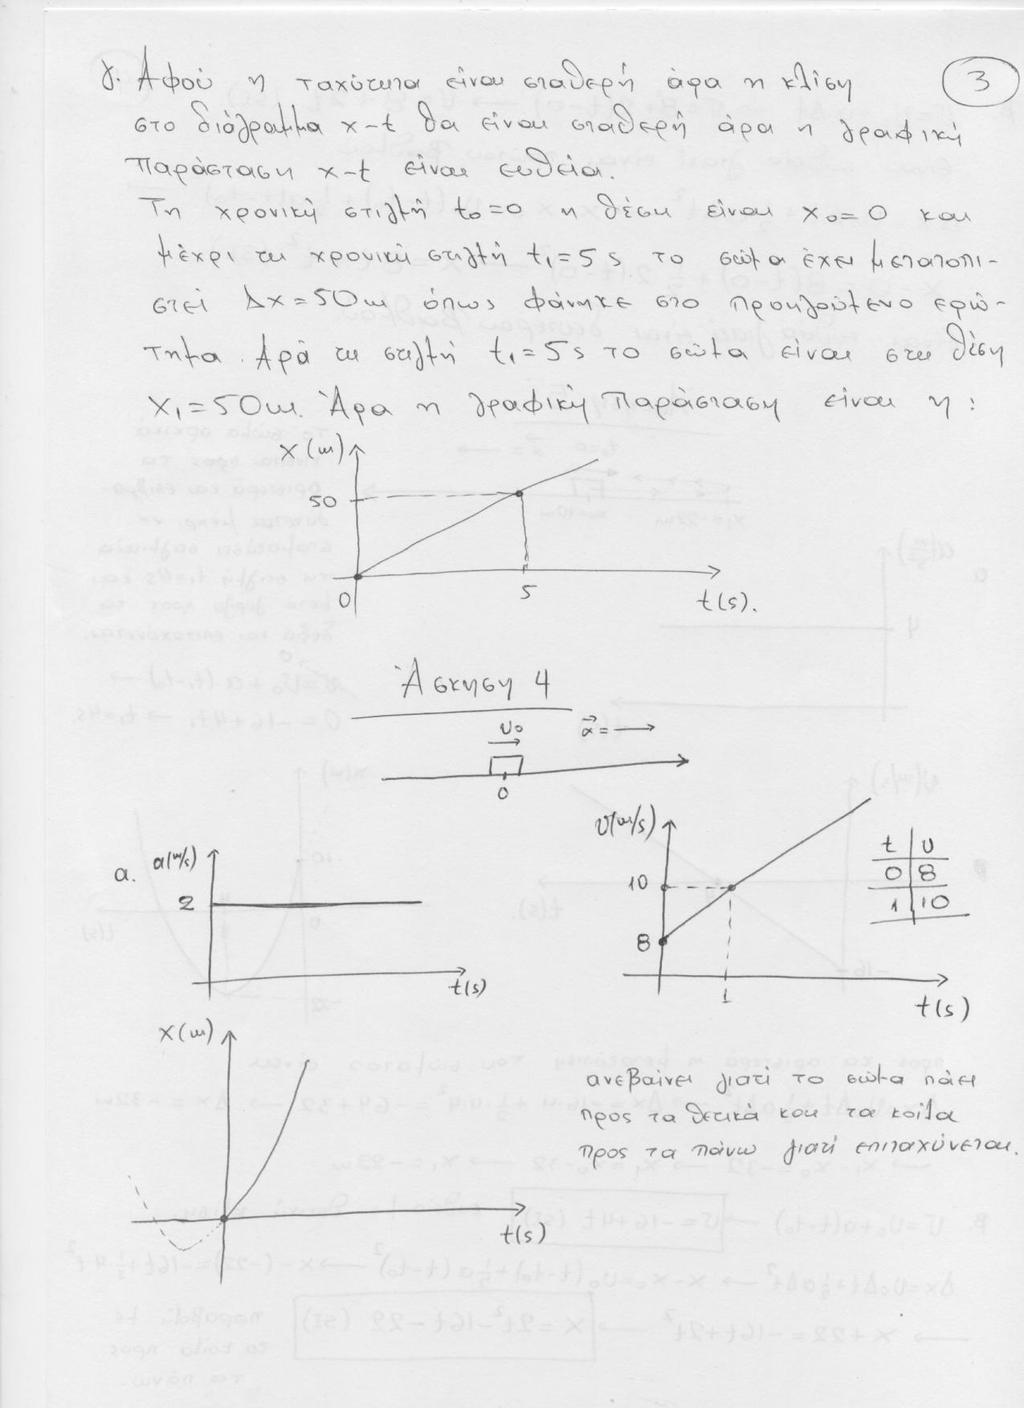 γ. Αφού η ταχύτητα είναι σταθερή άρα η κλίση
3
στο διάγραμμα x-t θα είναι σταθερή άρα η γραφική
παράσταση x-t είναι ευθεία.
Τη χρονική στιγμή t₀=0 η θέση είναι x₀=0 και
μέχρι τη χρονική στιγμή t₁=5s το σώμα έχει μετατοπι-
στεί Δx=50m όπως φάνηκε στο προηγούμενο ερώ-
τημα. Αρά τη στιγμή t₁=5s το σώμα είναι στη θέση
x₁=50m. Άρα η γραφική παράσταση είναι η:
x(m)
50
0
5
t(s).
Άσκηση 4
υ₀
α⃗=→
0
α.
a(m/s)
2
t(s)
υ(m/s)
10
8
1
t(s)
t υ
0 8
1 10
x(m)
t(s)
ανεβαίνει γιατί το σώμα πάει
προς τα θετικά και τα κοίλα
προς τα πάνω γιατί επιταχύνεται.